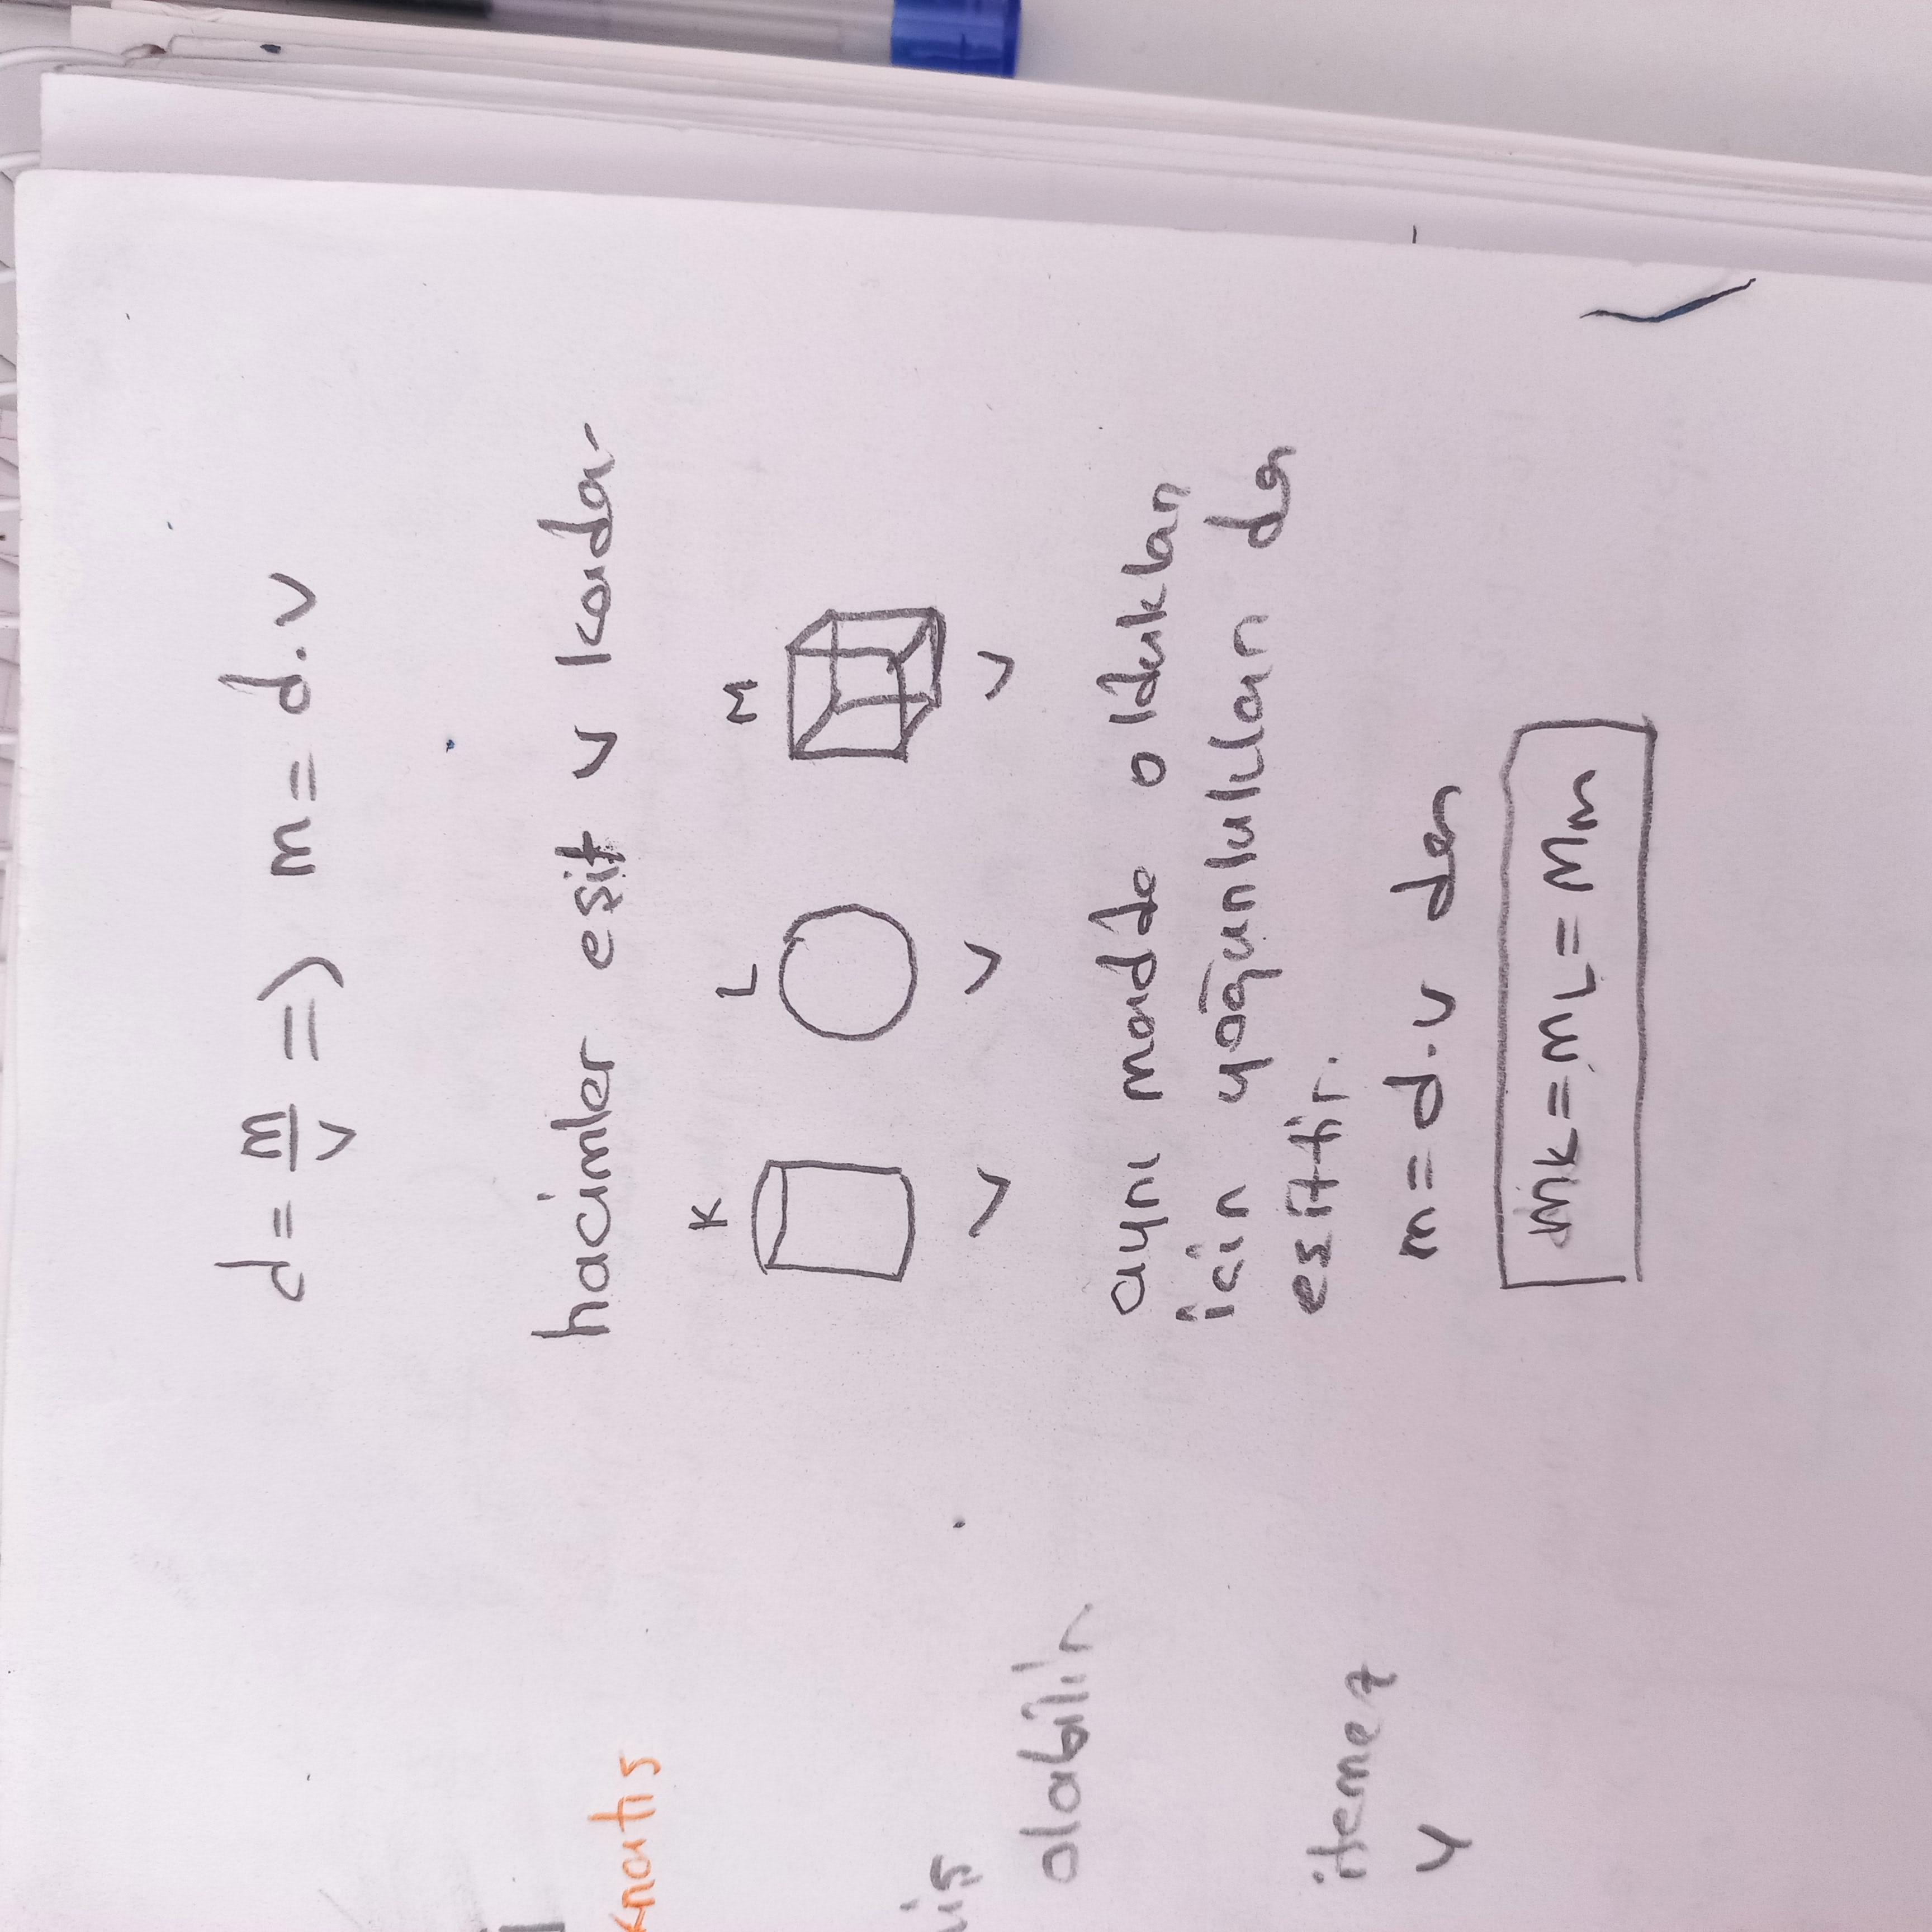 d = m/v => m = d.v
hacimler eşit v kadar
K L M
V V V
aynı madde oldukları
için yoğunlukları da
eşittir.
m = d.v den
mK = mL = mM
olabilir
itemez